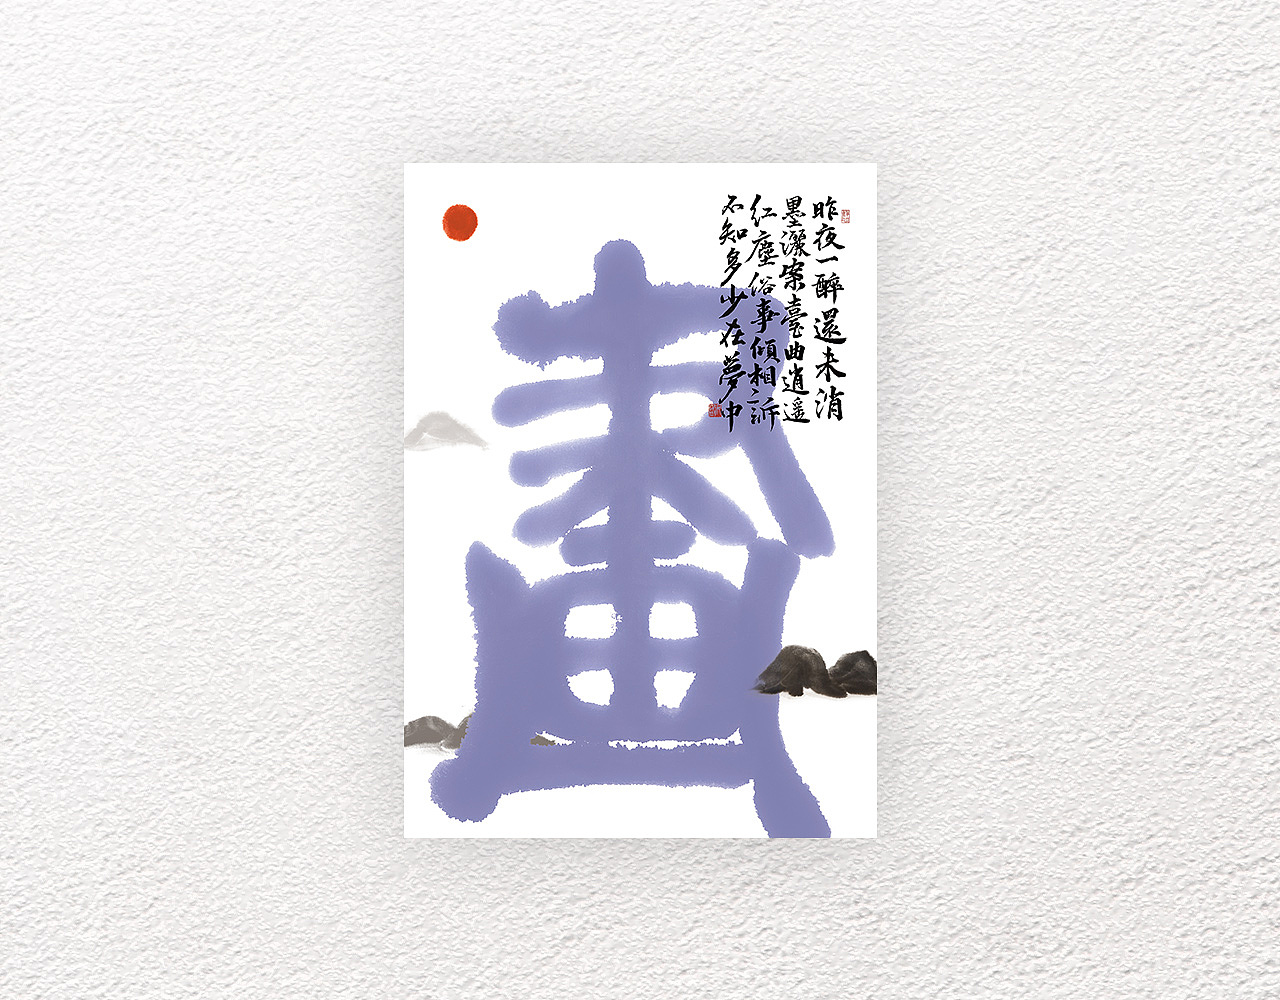 昨夜一醉還未消
墨灑案臺曲逍遥
紅塵俗事傾相訴
不知多少在夢中
畫